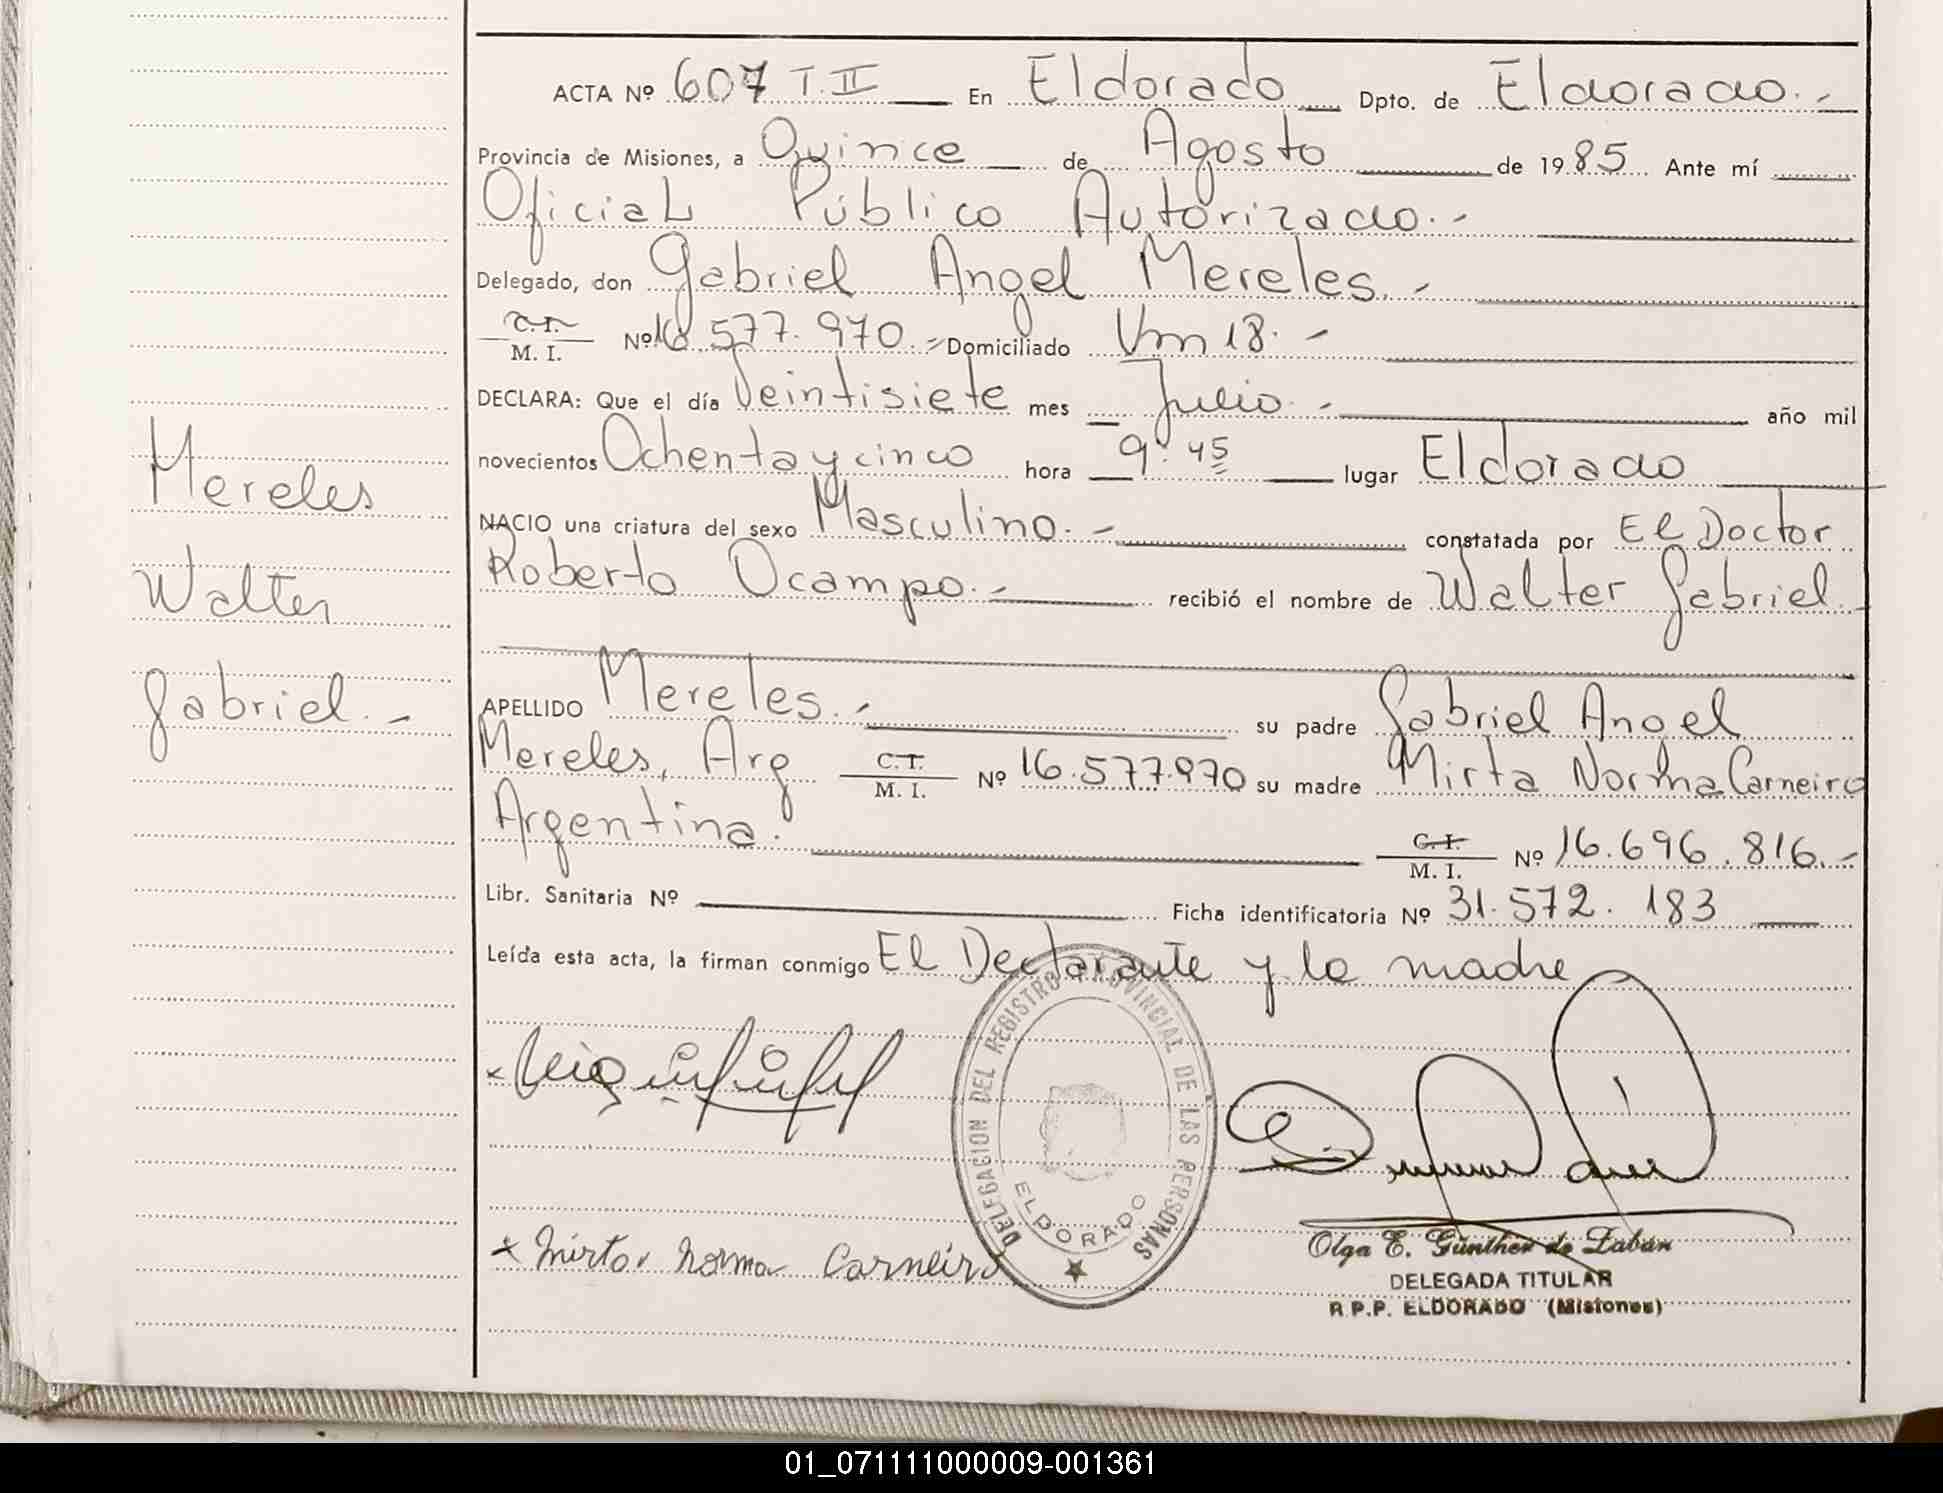 ACTA Nº 607 T. II En Eldorado Dpto. de Eldorado.-
Provincia de Misiones, a Quince de Agosto de 1985 Ante mí
Oficial Público Autorizado.-
Delegado, don Gabriel Angel Mereles.-
C.I. M. I. Nº 16.577.970.- Domiciliado Km 18.-
DECLARA: Que el día Veintisiete mes Julio.- año mil
novecientos Ochenta y cinco hora 9.45 lugar Eldorado
NACIO una criatura del sexo Masculino.- constatada por El Doctor
Roberto Ocampo.- recibió el nombre de Walter Gabriel
APELLIDO Mereles.- su padre Gabriel Angel
Mereles, Arg C.I. M. I. Nº 16.577.970 su madre Mirta Norma Carneiro
Argentina. C.I. M. I. Nº 16.696.816.-
Libr. Sanitaria Nº Ficha identificatoria Nº 31.572.183
Leída esta acta, la firman conmigo El Declarante y la madre
Mereles
Walter
Gabriel.-
DELEGACION DEL REGISTRO PROVINCIAL DE LAS PERSONAS
ELDORADO
x Mirta Norma Carneiro
Olga E. Günther de Zabán
DELEGADA TITULAR
R.P.P. ELDORADO (Misiones)
01_071111000009-001361